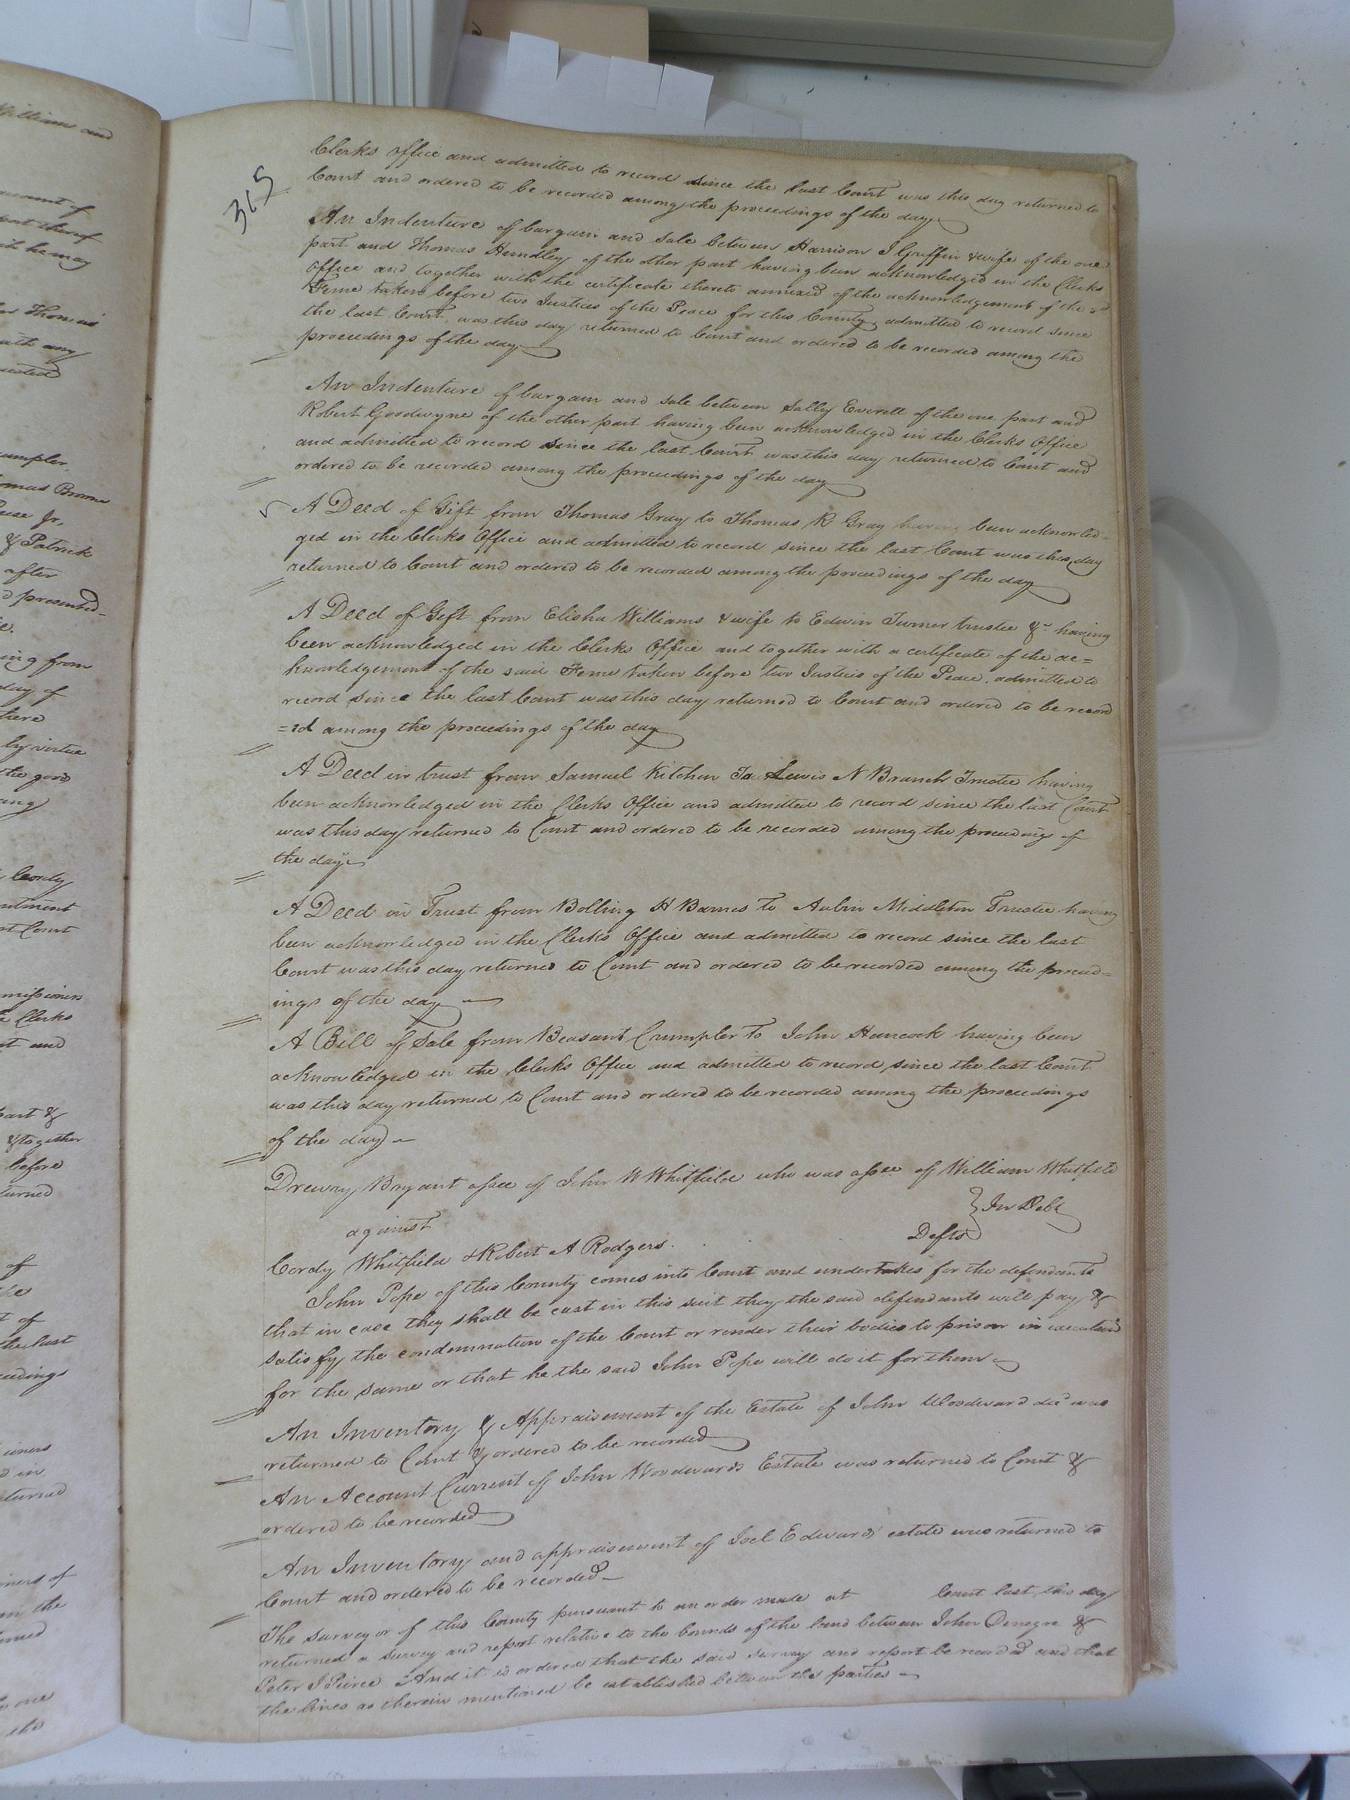 315
Clerks Office and admitted to record since the last Court was this day returned to
Court and ordered to be recorded among the proceedings of the day
An Indenture of bargain and sale between Harrison J Griffin & wife of the one
part and Thomas Hundley of the other part having been acknowledged in the Clerks
Office and together with the certificate thereto annexed of the acknowledgement of the sd
Feme taken before two Justices of the Peace for this County, admitted to record since
the last Court, was this day returned to Court and ordered to be recorded among the
proceedings of the day
An Indenture of bargain and sale between Sally Everett of the one part and
Robert Goodwyne of the other part having been acknowledged in the Clerks Office
and admitted to record since the last Court was this day returned to Court and
ordered to be recorded among the proceedings of the day
A Deed of Gift from Thomas Gray to Thomas R Gray having been acknowled-
ged in the Clerks Office and admitted to record since the last Court was this day
returned to Court and ordered to be recorded among the proceedings of the day
A Deed of Gift from Elisha Williams & wife to Edwin Turner trustee &c having
been acknowledged in the Clerks Office and together with a certificate of the ac=
knowledgement of the said Feme taken before two Justices of the Peace, admitted to
record since the last Court was this day returned to Court and ordered to be record
=ed among the proceedings of the day
A Deed in trust from Samuel Kitchen To Lewis N Branch Trustee having
been acknowledged in the Clerks Office and admitted to record since the last Court
was this day returned to Court and ordered to be recorded among the proceedings of
the day
A Deed in Trust from Bolling H Barnes to Aubin Middleton Trustee having
been acknowledged in the Clerks Office and admitted to record since the last
Court was this day returned to Court and ordered to be recorded among the proceed=
ings of the day
A Bill of Sale from Beasant Crumpler To John Hancock having been
acknowledged in the Clerks Office and admitted to record since the last Court
was this day returned to Court and ordered to be recorded among the proceedings
of the day
Drewry Bryant assee of John W Whitfield who was assee of William Whitfield
against } In Debt
Cordy Whitfield & Robert A Rodgers Defts
John Pope of this County comes into Court and undertakes for the defendants
that in case they shall be cast in this suit they the said defendants will pay &
satisfy the condemnation of the Court or render their bodies to prison in execution
for the same or that he the said John Pope will do it for them
An Inventory & Appraisement of the Estate of John Woodward decd was
returned to Court & ordered to be recorded
An Account Current of John Woodwards Estate was returned to Court &
ordered to be recorded
An Inventory and appraisement of Joel Edwards estate was returned to
Court and ordered to be recorded
The surveyor of this County pursuant to an order made at Court last, this day
returned a survey and report relative to the bounds of the land between John Denegre &
Peter J Peirce And it is ordered that the said survey and report be recorded and that
the lines as therein mentioned be established between the parties